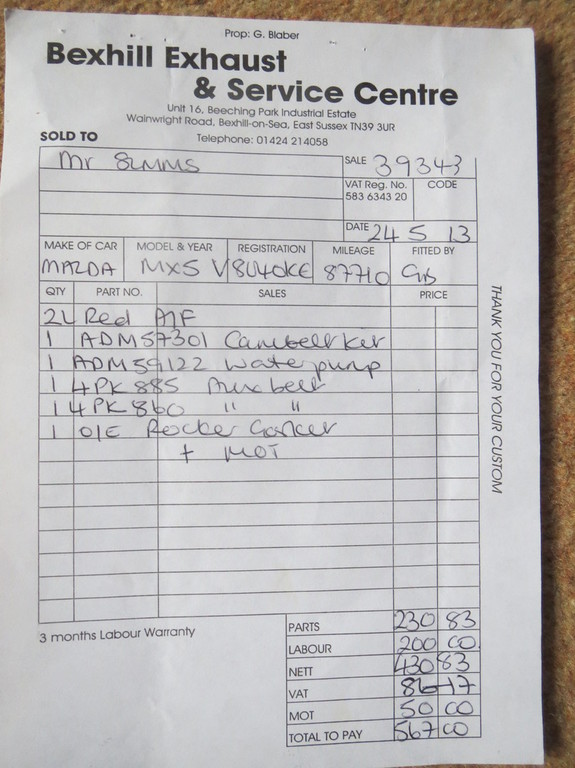 Prop: G. Blaber
Bexhill Exhaust
& Service Centre
Unit 16, Beeching Park Industrial Estate
Wainwright Road, Bexhill-on-Sea, East Sussex TN39 3UR
SOLD TO
Telephone: 01424 214058
Mr SIMMS
SALE 39343
VAT Reg. No. CODE
583 6343 20
DATE 24 5 13
MAKE OF CAR MODEL & YEAR REGISTRATION MILEAGE FITTED BY
MAZDA MX5 V804OKE 87710
QTY PART NO. SALES PRICE
2L Red A/F
1 ADM57301 Cambelt Kit
1 ADM59122 Water pump
1 4PK885 Aux belt
1 4PK860 " "
1 O/E Rocker Gasket
+ MOT
THANK YOU FOR YOUR CUSTOM
3 months Labour Warranty
PARTS 230 83
LABOUR 200 00
NETT 430 83
VAT 86-17
MOT 50 00
TOTAL TO PAY 567 00